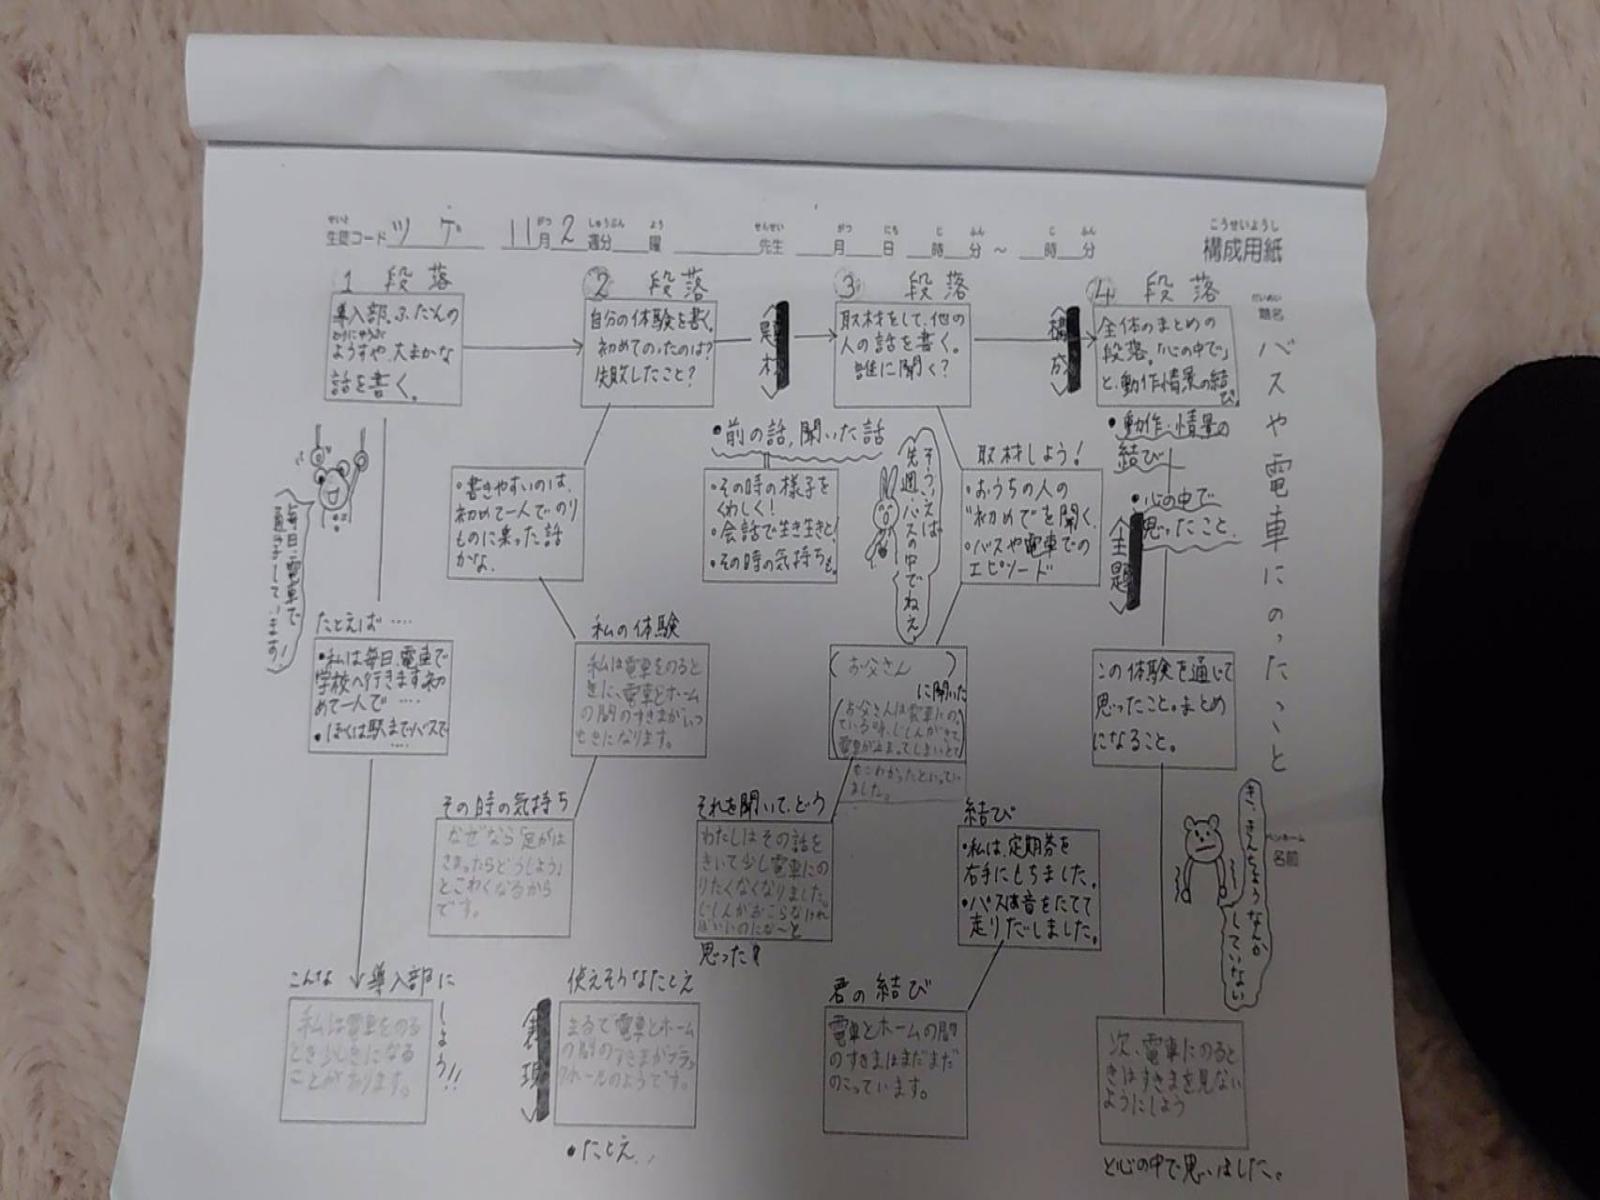 こうせいようし
構成用紙
せいと がつ しゅうぶん よう せんせい がつ にち じ ふん じ ふん
生徒コード ツ ゲ 11月2週分 曜 先生 月 日 時 分 ～ 時 分
だいめい
題名
バスや電車にのったこと
ペンネーム
名前
1 段落
導入部。ふだんの
ようすや、大まかな
話を書く。
毎日、電車で
通学しています!
たとえば ‥‥
・私は毎日、電車で
学校へ行きます。初
めて一人で ‥‥
・ぼくは駅までバスで
‥‥
こんな 導入部に
しよう!!
私は電車をのる
とき少しきになる
ことがあります。
② 段落
自分の体験を書く。
初めてのったのは?
失敗したこと?
・書きやすいのは、
初めて一人でのり
ものに乗った話
かな。
私の体験
私は電車をのると
きに、電車とホーム
の間のすきまがいつ
もきになります。
その時の気持ち
なぜなら「足がは
さまったらどうしよう」
とこわくなるから
です。
使えそうなたとえ
まるで電車とホーム
の間のすきまがブラッ
クホールのようです。
・たとえ
〈表現〉
〈題材〉
③ 段落
取材をして、他の
人の話を書く。
誰に聞く?
・前の話,聞いた話
・その時の様子を
くわしく!
・会話で生き生きと!
・その時の気持ちも。
そういえば
先週、バスの中でねえ、
取材しよう!
・おうちの人の
"初めて"を聞く。
・バスや電車での
エピソード
(お父さん)
に聞いた
お父さんは電車にの
ている時、じしんがきて
電車が止まってしまいとて
もこわかったといってい
ました。
それを聞いて、どう
わたしはその話を
きいて少し電車にの
りたくなくなりました。
じしんがおこらなけれ
ばいいのにな～と
思った?
結び
・私は、定期券を
右手にもちました。
・バスは音をたてて
走りだしました。
君の結び
電車とホームの間
のすきまはまだまだ
のこっています。
〈構成〉
④ 段落
全体のまとめの
段落。「心の中で」
と、動作・情景の結
び。
・動作・情景の
結び
・心の中で
思ったこと。
〈主題〉
この体験を通じて
思ったこと。まとめ
になること。
き、きんちょうなんか
していない
次、電車にのると
きはすきまを見ない
ようにしよう
と心の中で思いました。